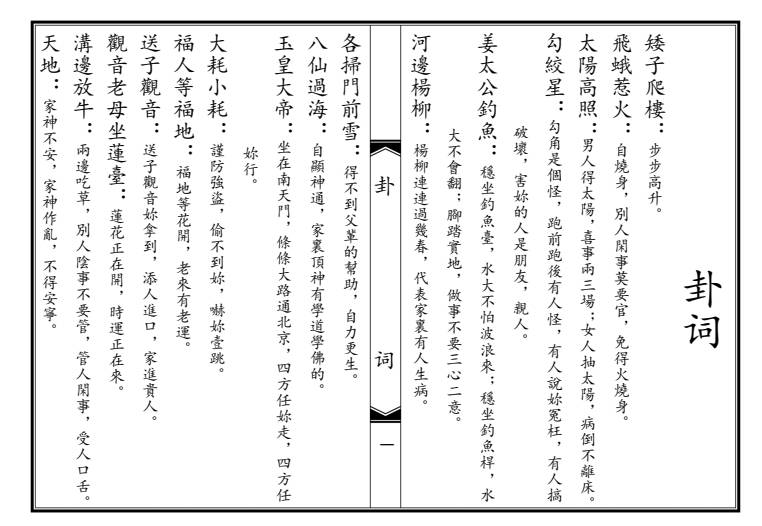 卦词
矮子爬樓：步步高升。
飛蛾惹火：自燒身，別人閑事莫要官，免得火燒身。
太陽高照：男人得太陽，喜事兩三場；女人抽太陽，病倒不離床。
勾絞星：勾角是個怪，跑前跑後有人怪，有人說妳冤枉，有人搞
破壞，害妳的人是朋友，親人。
姜太公釣魚：穩坐釣魚臺，水大不怕波浪來；穩坐釣魚桿，水
大不會翻；腳踏實地，做事不要三心二意。
河邊楊柳：楊柳連連過幾春，代表家裏有人生病。
卦
詞
一
各掃門前雪：得不到父輩的幫助，自力更生。
八仙過海：自顯神通，家裏頂神有學道學佛的。
玉皇大帝：坐在南天門，條條大路通北京，四方任妳走，四方任
妳行。
大耗小耗：謹防強盜，偷不到妳，嚇妳壹跳。
福人等福地：福地等花開，老來有老運。
送子觀音：送子觀音妳拿到，添人進口，家進貴人。
觀音老母坐蓮臺：蓮花正在開，時運正在來。
溝邊放牛：兩邊吃草，別人陰事不要管，管人閑事，受人口舌。
天地：家神不安，家神作亂，不得安寧。